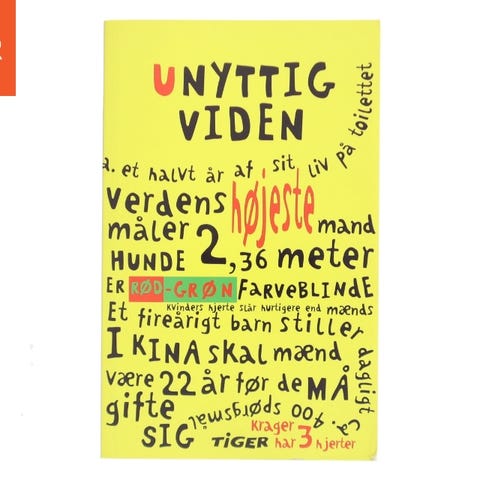 UNYTTIG
VIDEN
a. et halvt år af sit liv på toilettet
verdens højeste mand
måler 2,36 meter
HUNDE
ER RØD-GRØN FARVEBLINDE
Kvinders hjerte slår hurtigere end mænds
Et fireårigt barn stiller dagligt
ca. 400 spørgsmål
I KINA skal mænd
være 22 år før de MÅ
gifte
SIG
TiGER
Krager
har 3 hjerter